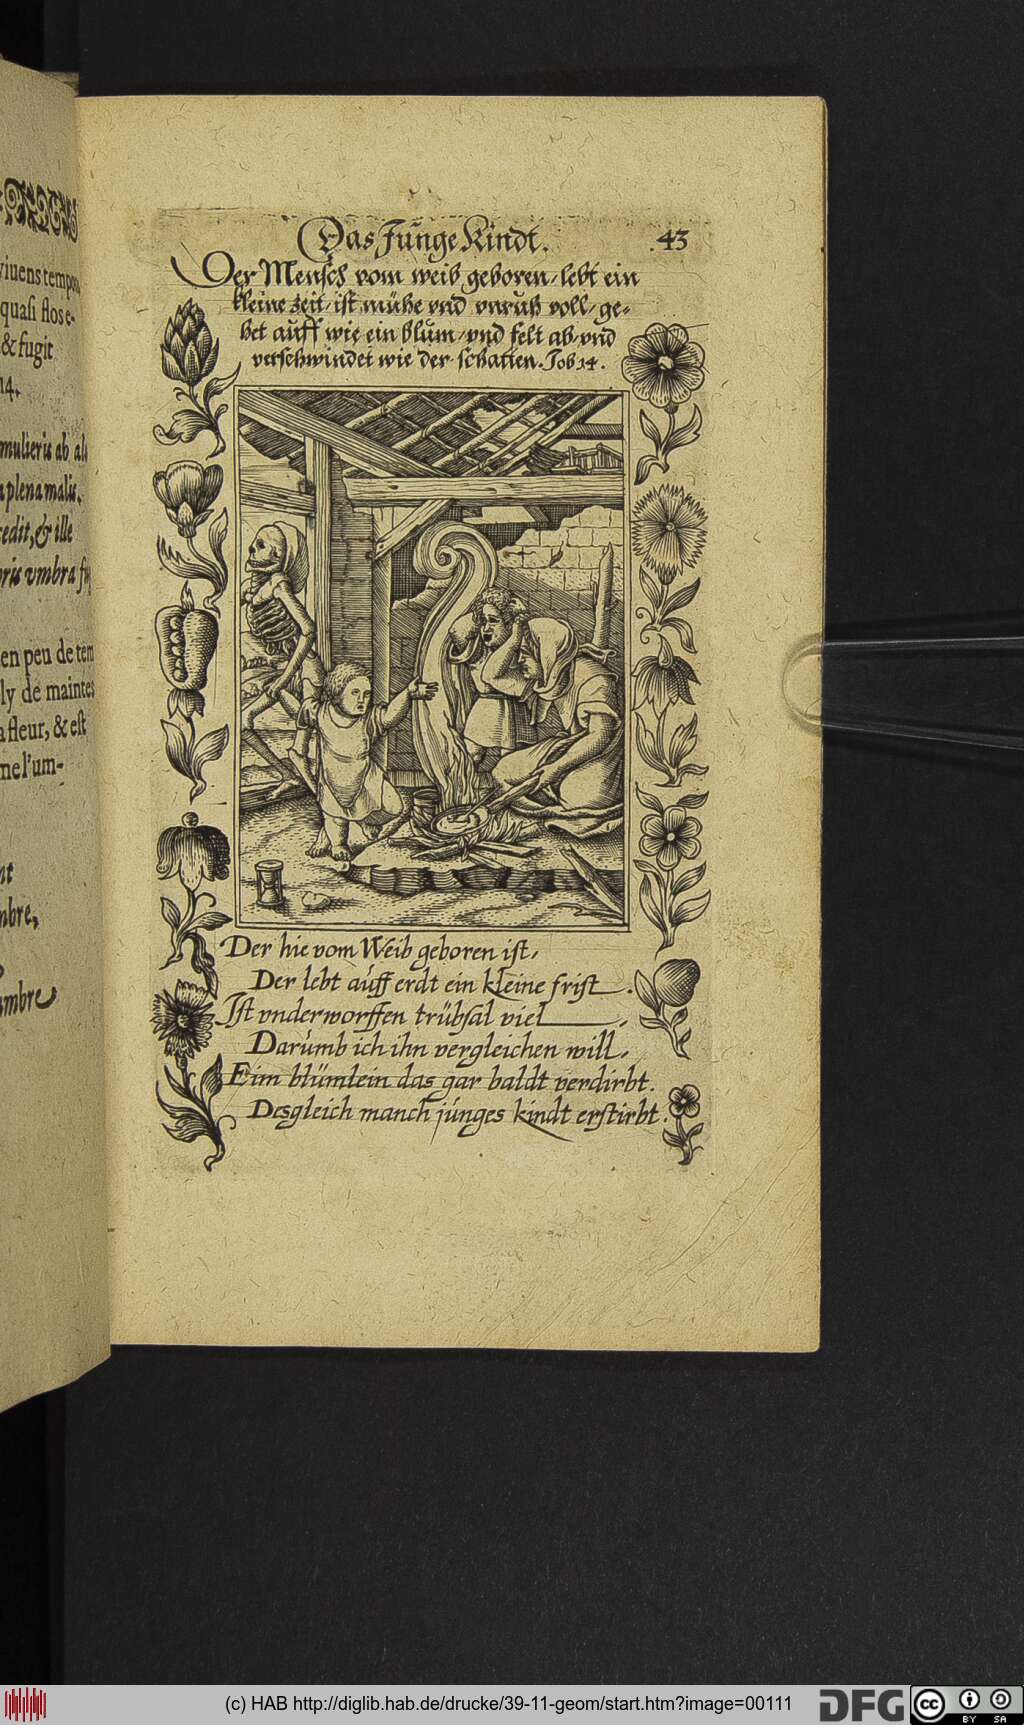 viuens tempore
quasi flos e-
& fugit
14.
mulieris ab al
plena malis.
cedit, & ille
oris vmbra fu
en peu de tem
ly de maintes
a fleur, & est
ne l'um-
nt
mbre,
ombre
Das Junge Kindt.
43
Der Mensch vom weib geboren, lebt ein
kleine zeit, ist mühe vnd vnruh voll, ge-
het auff wie ein blum, vnd felt ab, vnd
verschwindet wie der schatten. Job 14.
Der hie vom Weib geboren ist,
Der lebt auff erdt ein kleine frist.
Ist vnderworffen trübsal viel,
Darumb ich ihn vergleichen will,
Eim blümlein das gar baldt verdirbt.
Desgleich manch junges kindt erstirbt.
(c) HAB http://diglib.hab.de/drucke/39-11-geom/start.htm?image=00111
DFG
cc
BY SA